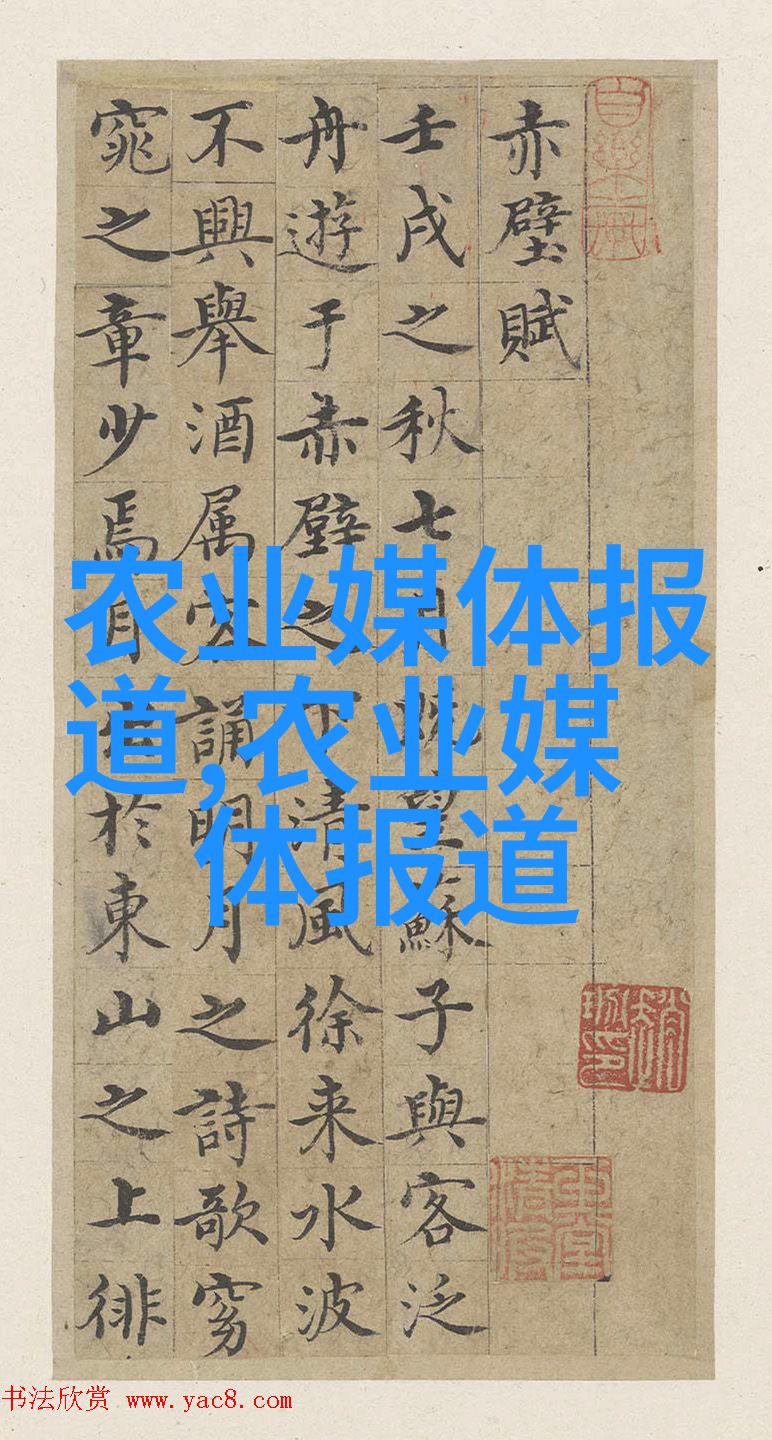 赤壁賦
壬戌之秋七月既望蘇子與客泛
舟遊于赤壁之下清風徐来水波
不興舉酒属客誦明月之詩歌窈
窕之章少焉月出於東山之上徘
农业媒体报
道,农业媒
体报道
书法欣赏 www.yac8.com